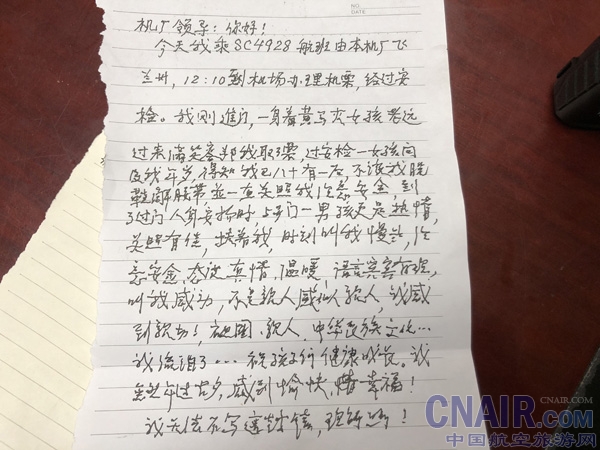 NO.
DATE
机厂领导：你好！
今天我乘SC4928航班由本机厂飞
兰州，12:10到机场办理机票，经过安
检。我刚进门，一身着黄马夹女孩老远
过来满笑容帮我取票，过安检一女孩问
及我年岁，得知我已八十有一左，不让我脱
鞋解腰带，並一直关照我注意安全，到
了过门人身安检时，5号门一男孩更是热情，
关照有佳，扶着我，时刻叫我慢点，注
意安全，态度真情、温暖，语言实实在在，
叫我感动，不是亲人感似亲人，我感
到亲切，祖国、亲人、中华民族文化…
我流泪了…祝孩子们健康成长。我
虽然年过古，感到愉快，情幸福！
我无法不写这封信，
CNAIR.COM
CNAIR.COM
中国航空旅游网